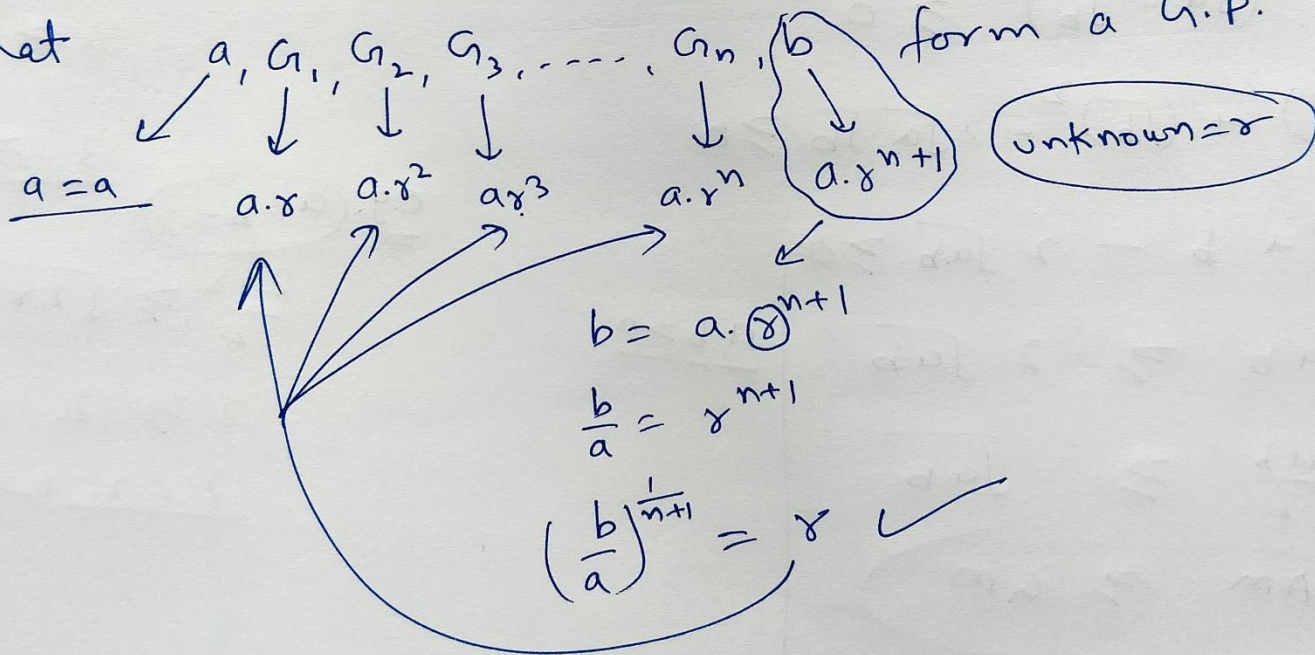 at a, G₁, G₂, G₃, ....., Gₙ, b form a G.P.
a = a a.r a.r² ar³ a.rⁿ a.rⁿ⁺¹ unknown = r
b = a.rⁿ⁺¹
b/a = rⁿ⁺¹
(b/a)^(1/(n+1)) = r ✓